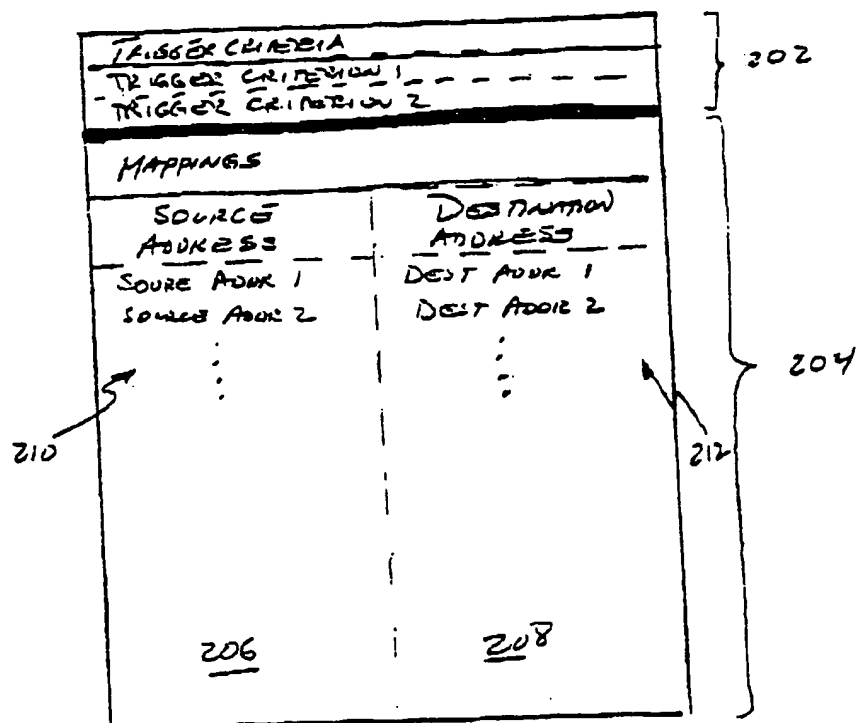 TRIGGER CRITERIA
202
TRIGGER CRITERION 1
TRIGGER CRITERION 2
MAPPINGS
SOURCE
ADDRESS
DESTINATION
ADDRESS
SOURE ADDR 1
DEST ADDR 1
SOURCE ADDR 2
DEST ADDR 2
204
210
212
206
208